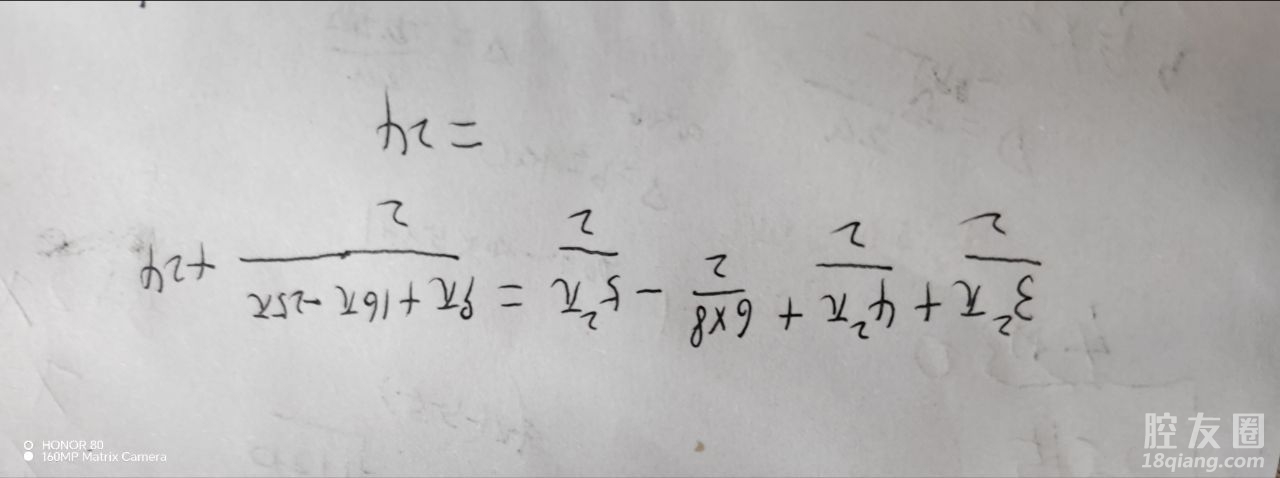 3²π/2 + 4²π/2 + 6×8/2 - 5²π/2 = 9π+16π-25π/2 +24
=24
HONOR 80
160MP Matrix Camera
腔友圈
18qiang.com